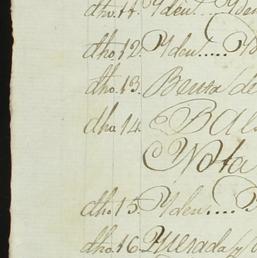 dho. 11. Yden.... Yden
dho. 12. Yden.... Yd
dho. 13. Benta de
dha 14. Bal
Nota
dho. 15. Yden....
dho. 16. Quesada y